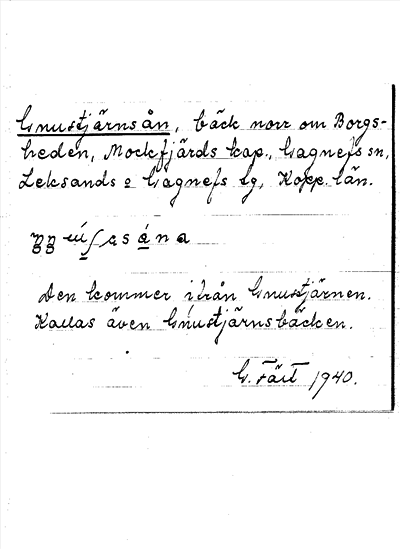 Gnustjärnsån, bäck norr om Borgs-
heden, Mockfjärds kap., Gagnefs sn,
Leksands o Gagnefs tg, Kopp. län.
Den kommer ifrån Gnustjärnen.
Kallas även Gnustjärnsbäcken.
G. 1940.